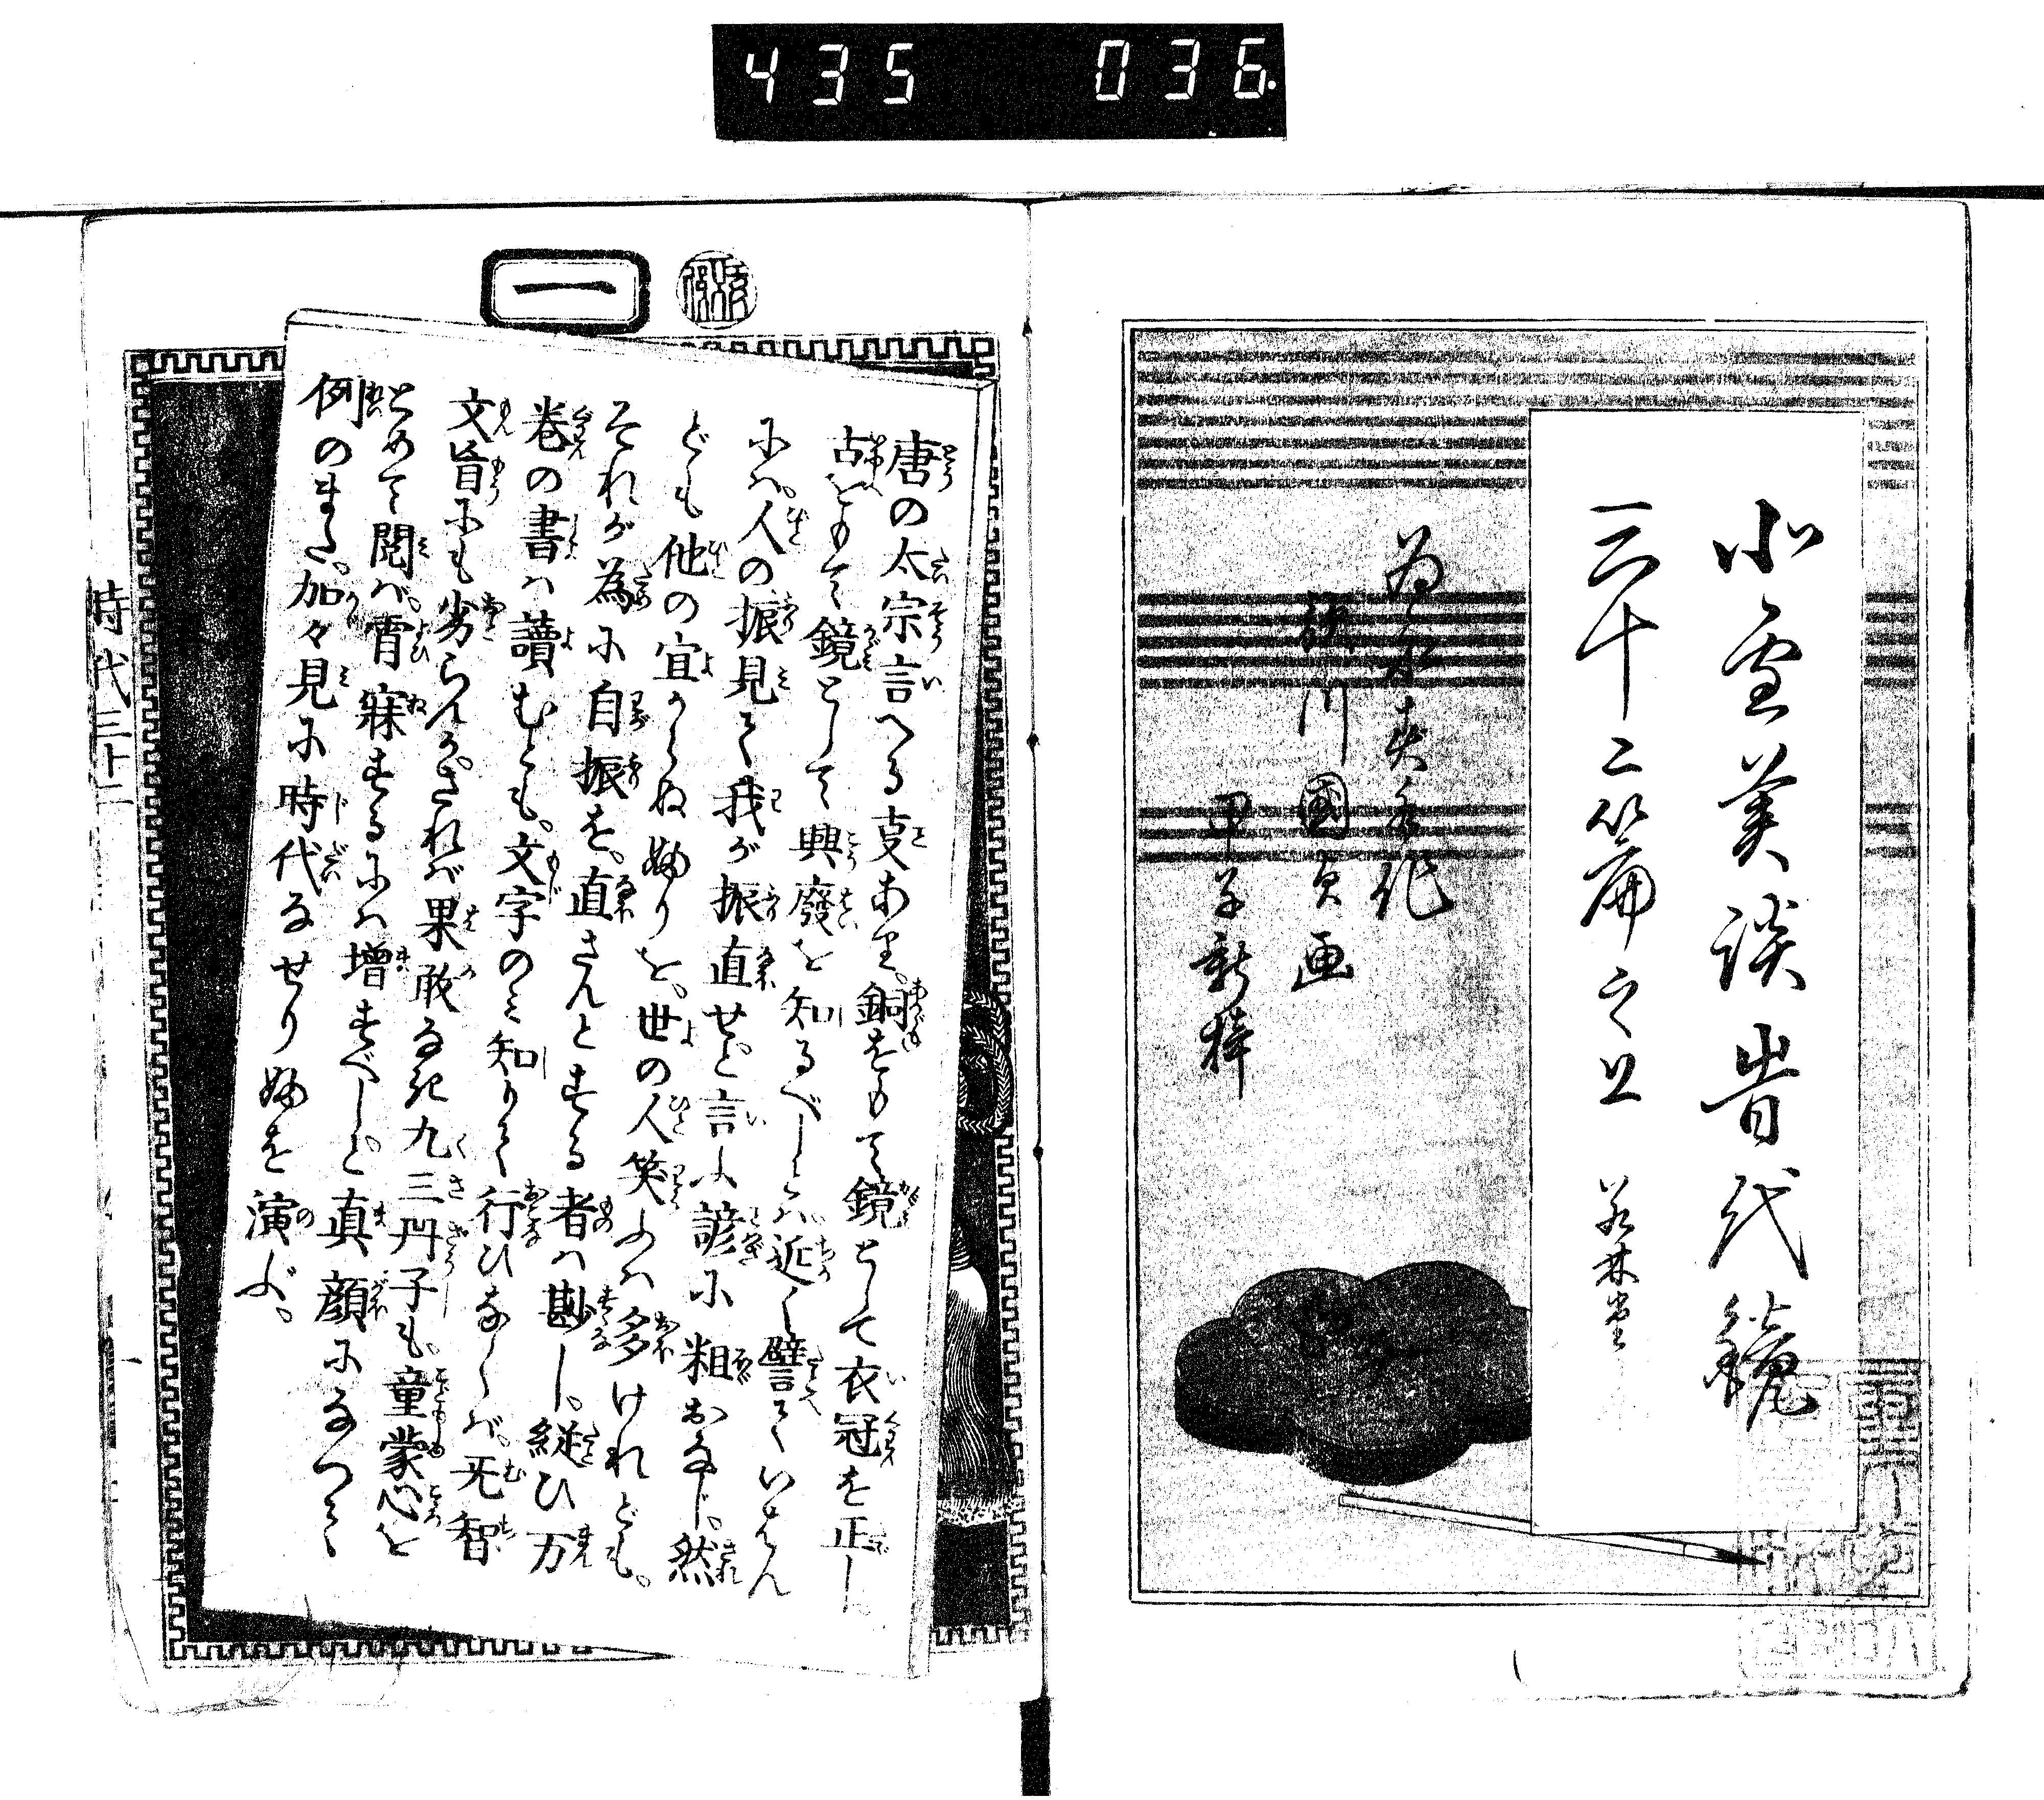 435 036
北雪美談時代鏡
三十二篇之上 若林堂
為永春水作
歌川國貞画
甲子新梓
一
唐の太宗言へる支あり。銅をもて鏡として衣冠を正し。
古をもて鏡として興廢を知るべしとは近く譬ていはん
には。人の振見て我が振直せと言ふ諺に粗おなじ。然
ども他の宜からぬ好りを。世の人笑ふは多けれども。
それが為に自振を。直さんとする者は尠し。縦ひ万
巻の書は讀むとも。文字のミ知りて行ひならへば。无智
文旨にも劣らんか。されば果敢なき九三冊子も。童蒙心を
とめて閲ば。宵寐するには増すべしと。真顔になつて
例のまた。加々見に時代なせり好を演ぶ。
時代三十二